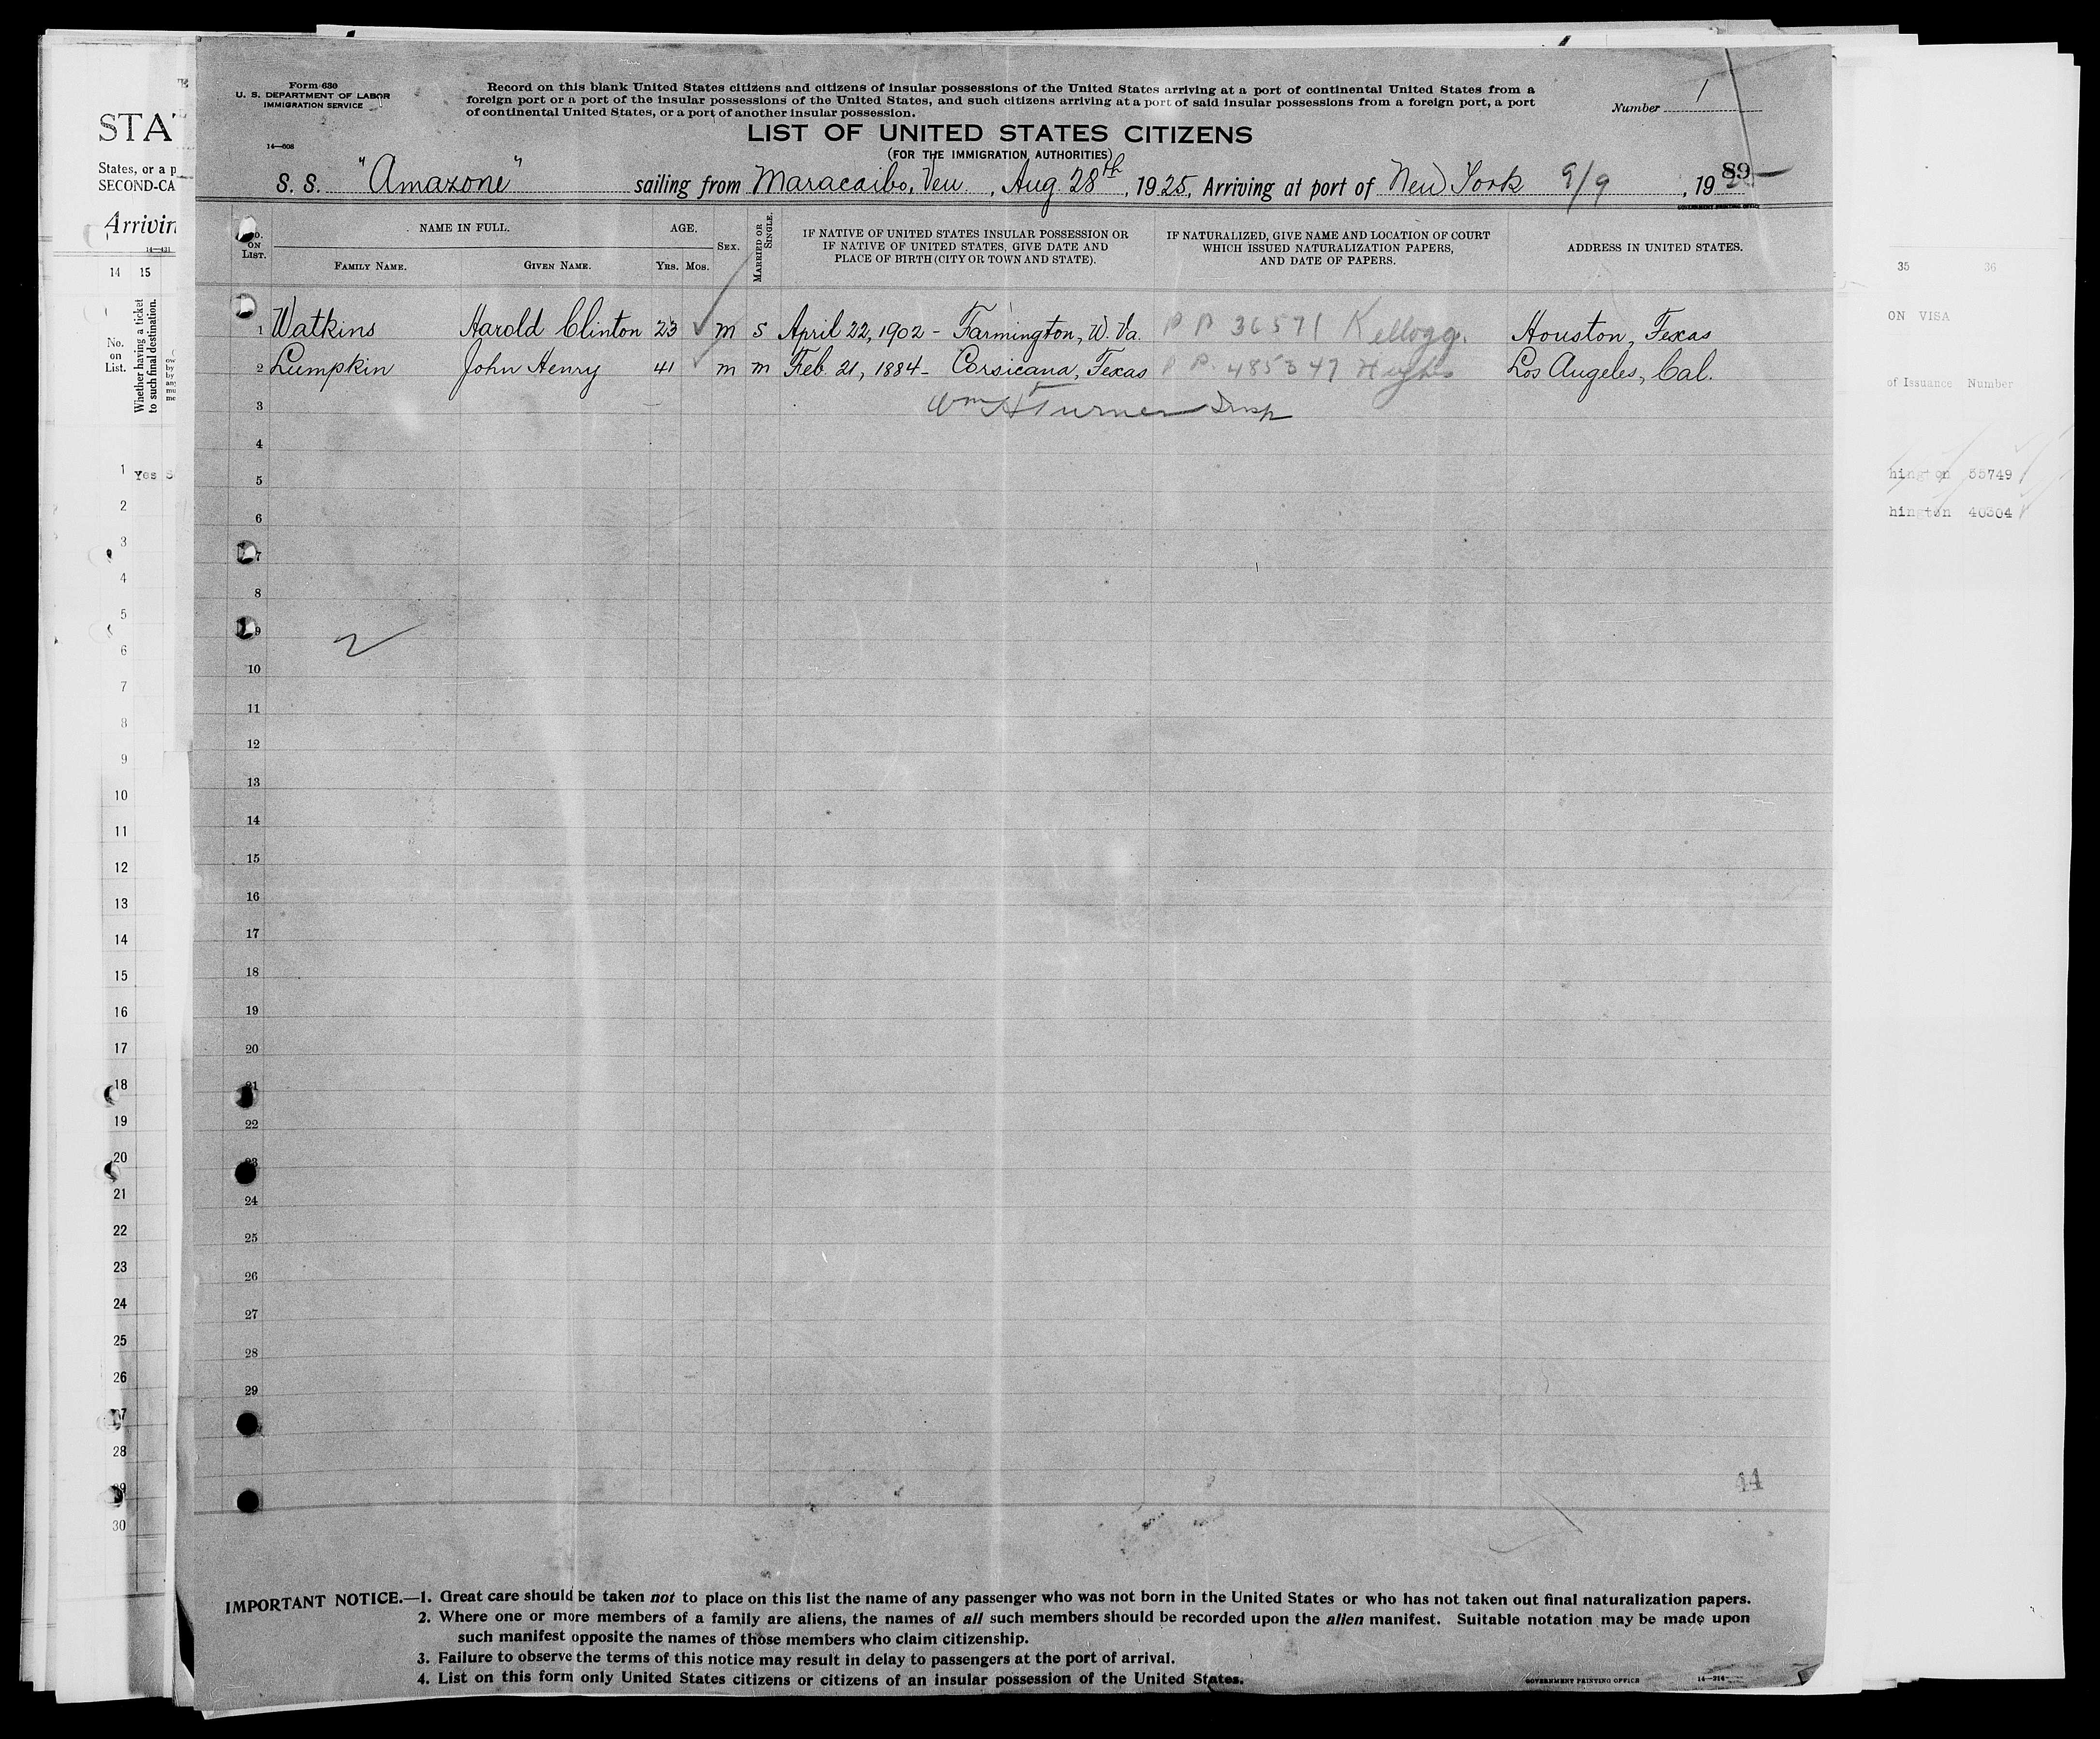 Form 630
U. S. DEPARTMENT OF LABOR
IMMIGRATION SERVICE
14—608
Record on this blank United States citizens and citizens of insular possessions of the United States arriving at a port of continental United States from a
foreign port or a port of the insular possessions of the United States, and such citizens arriving at a port of said insular possessions from a foreign port, a port
of continental United States, or a port of another insular possession.
Number 1
LIST OF UNITED STATES CITIZENS
(FOR THE IMMIGRATION AUTHORITIES)
89
S. S. "Amazone" sailing from Maracaibo, Ven., Aug. 28th, 1925, Arriving at port of New York 9/9, 19
GOVERNMENT PRINTING OFFICE
NO. ON LIST.
NAME IN FULL.
FAMILY NAME. GIVEN NAME.
AGE.
YRS. MOS.
SEX.
MARRIED OR SINGLE.
IF NATIVE OF UNITED STATES INSULAR POSSESSION OR
IF NATIVE OF UNITED STATES, GIVE DATE AND
PLACE OF BIRTH (CITY OR TOWN AND STATE).
IF NATURALIZED, GIVE NAME AND LOCATION OF COURT
WHICH ISSUED NATURALIZATION PAPERS,
AND DATE OF PAPERS.
ADDRESS IN UNITED STATES.
1 Watkins Harold Clinton 23 m s April 22, 1902 - Farmington, W. Va. P P 36571 Kellogg. Houston, Texas
2 Lumpkin John Henry 41 m m Feb. 21, 1884 - Corsicana, Texas P P. 485347 Hughes Los Angeles, Cal.
3 Wm H Turner Insp
4
5
6
7
8
9
2
10
11
12
13
14
15
16
17
18
19
20
21
22
23
24
25
26
27
28
29
44
IMPORTANT NOTICE.—1. Great care should be taken not to place on this list the name of any passenger who was not born in the United States or who has not taken out final naturalization papers.
2. Where one or more members of a family are aliens, the names of all such members should be recorded upon the alien manifest. Suitable notation may be made upon
such manifest opposite the names of those members who claim citizenship.
3. Failure to observe the terms of this notice may result in delay to passengers at the port of arrival.
4. List on this form only United States citizens or citizens of an insular possession of the United States.
GOVERNMENT PRINTING OFFICE 14—214
STAT
States, or a p
SECOND-CA
Arrivin
14—431
14 15
No. on List.
Whether having a ticket
to such final destination.
1 Yes S
2
3
4
5
6
7
8
9
10
11
12
13
14
15
16
17
18
19
20
21
22
23
24
25
26
27
28
29
30
35 36
ON VISA
of Issuance Number
hington 55749
hington 40304